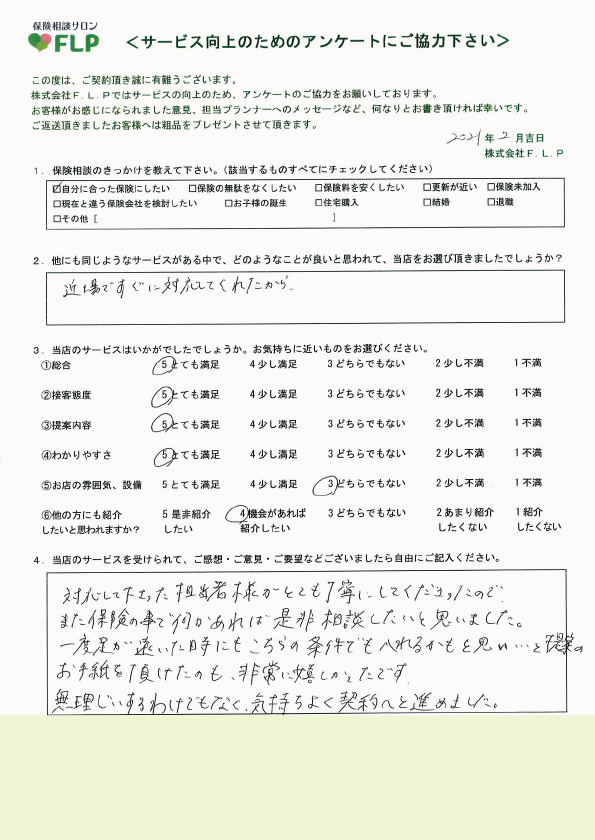 保険相談サロン
FLP
＜サービス向上のためのアンケートにご協力下さい＞
この度は、ご契約頂き誠に有難うございます。
株式会社Ｆ．Ｌ．Ｐではサービスの向上のため、アンケートのご協力をお願いしております。
お客様がお感じになられました意見、担当プランナーへのメッセージなど、何なりとお書き頂ければ幸いです。
ご返送頂きましたお客様へは粗品をプレゼントさせて頂きます。
2021年 2 月吉日
株式会社Ｆ．Ｌ．Ｐ
１．保険相談のきっかけを教えて下さい。（該当するものすべてにチェックしてください）
☑自分に合った保険にしたい □保険の無駄をなくしたい □保険料を安くしたい □更新が近い □保険未加入
□現在と違う保険会社を検討したい □お子様の誕生 □住宅購入 □結婚 □退職
□その他［ ］
２．他にも同じようなサービスがある中で、どのようなことが良いと思われて、当店をお選び頂きましたでしょうか？
近場ですぐに対応してくれたから。
３．当店のサービスはいかがでしたでしょうか。お気持ちに近いものをお選びください。
①総合 ５とても満足 ４少し満足 ３どちらでもない ２少し不満 １不満
②接客態度 ５とても満足 ４少し満足 ３どちらでもない ２少し不満 １不満
③提案内容 ５とても満足 ４少し満足 ３どちらでもない ２少し不満 １不満
④わかりやすさ ５とても満足 ４少し満足 ３どちらでもない ２少し不満 １不満
⑤お店の雰囲気、設備 ５とても満足 ４少し満足 ３どちらでもない ２少し不満 １不満
⑥他の方にも紹介 ５是非紹介 ４機会があれば ３どちらでもない ２あまり紹介 １紹介
したいと思われますか？ したい 紹介したい したくない したくない
４．当店のサービスを受けられて、ご感想・ご意見・ご要望などございましたら自由にご記入ください。
対応して下さった担当者様がとても丁寧にしてくださったので
また保険の事で何かあれば是非相談したいと思いました。
一度足が遠いた時にもこちらの条件でも入れるかもと思い…と提案の
お手紙を頂けたのも、非常に嬉しかったです。
無理じいするわけでもなく、気持ちよく契約へと進めました。